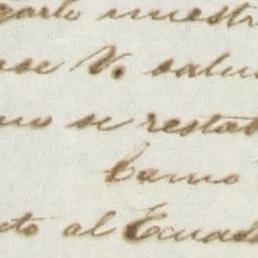 carlo nuestr
se V. salu
no se restab
Camo
to al Ecuad